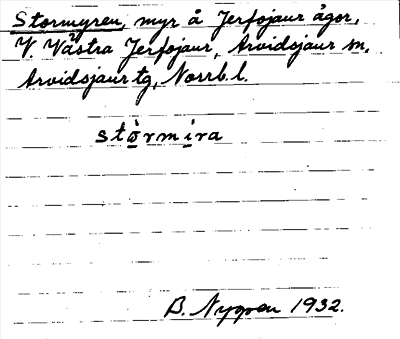 Stormyren, myr å Jerfojaur ägor,
V. Västra Jerfojaur, Arvidsjaur sn,
Arvidsjaur tg, Norrb. l.
stòrmira
B. Nygren 1932.